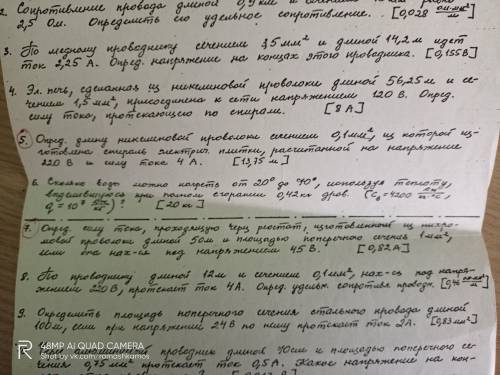 2. Сопротивление провода длиной 0,9 км и сечением равно
2,5 Ом. Определить его удельное сопротивление. [0,028 Ом·мм²/м]
3. По медному проводнику сечением 3,5 мм² и длиной 14,2 м идет
ток 2,25 А. Опред. напряжение на концах этого проводника. [0,155 В]
4. Эл. печь, сделанная из никелиновой проволоки длиной 56,25 м и се-
чением 1,5 мм², присоединена к сети напряжением 120 В. Опред.
силу тока, протекающего по спирали. [8 А]
5. Опред. длину никелиновой проволоки сечением 0,1 мм², из которой из-
готовлена спираль электрич. плитки, рассчитанной на напряжение
220 В и силу тока 4 А. [13,75 м]
6. Сколько воды можно нагреть от 20° до 70°, используя теплоту,
выделившуюся при полном сгорании 0,42 кг дров. (Cв = 4200 Дж/кг·°С,
q = 10⁷ Дж/кг)? [20 кг]
7. Опред. силу тока, проходящую через реостат, изготовленный из нихро-
мовой проволоки длиной 50 м и площадью поперечного сечения 1 мм²,
если она нах-ся под напряжением 45 В. [0,82 А]
8. По проводнику длиной 12 м и сечением 0,1 мм², нах-ся под напря-
жением 220 В, протекает ток 4 А. Опред. удельное сопротивл проводн. [0,46 Ом·мм²/м]
9. Определить площадь поперечного сечения стального провода длиной
100 м, если при напряжении 24 В по нему протекает ток 2 А. [0,83 мм²]
проводник длиной 70 см и площадью поперечного се-
чения 0,75 мм² протекает ток 0,5 А. Какое напряжение на кон-
48MP AI QUAD CAMERA
Shot by vk.com/ramashkamos